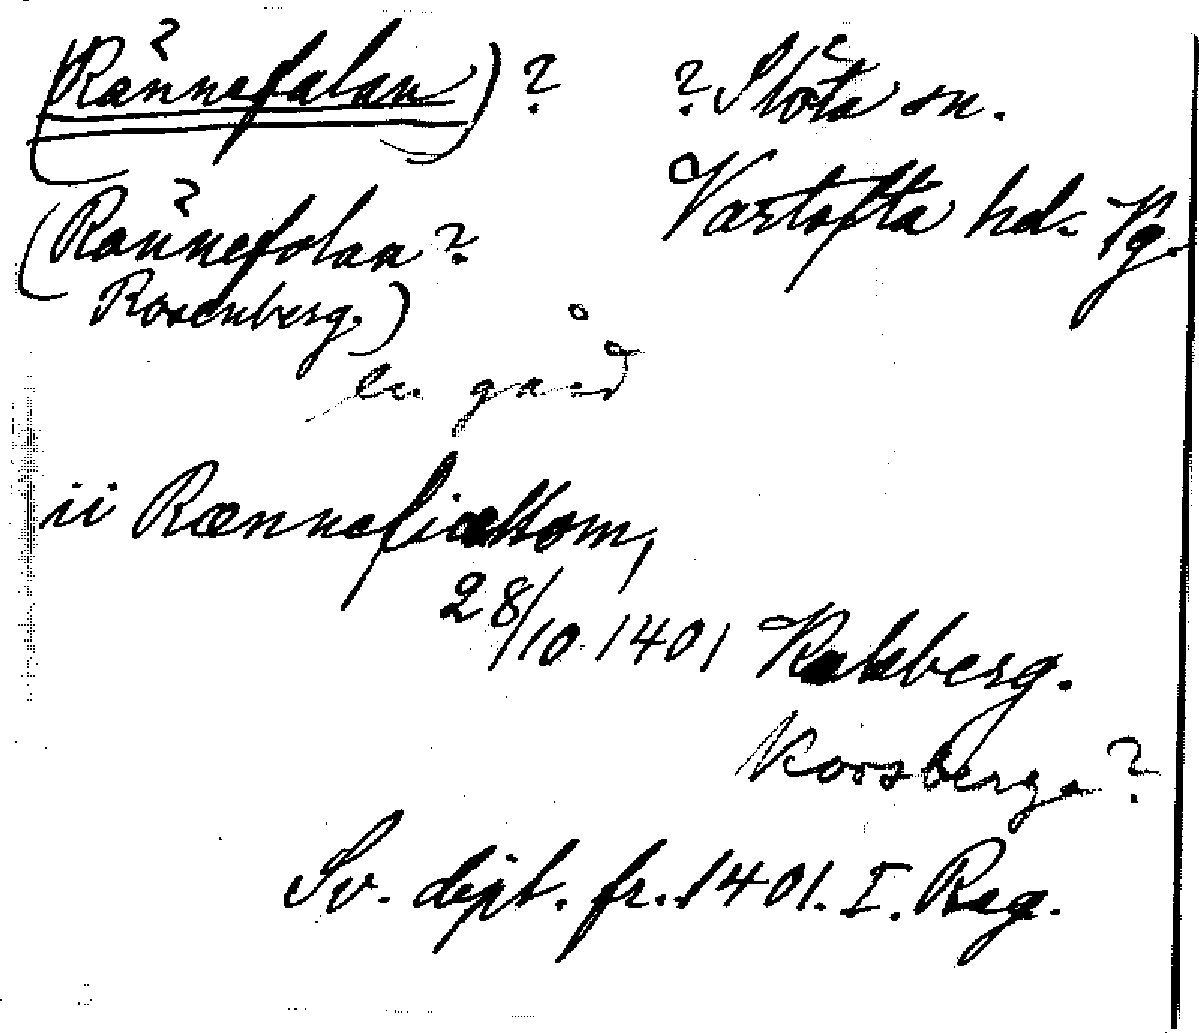 (Rännefalan)? ? Slöta sn.
Vartofta hd. Vg.
(Rännefolan?
Rosenberg.)
en gård
ii Rænnefiættom,
28/10 1401 Kakberg.
Korsberga?
Sv. dipl. fr. 1401. I. Reg.